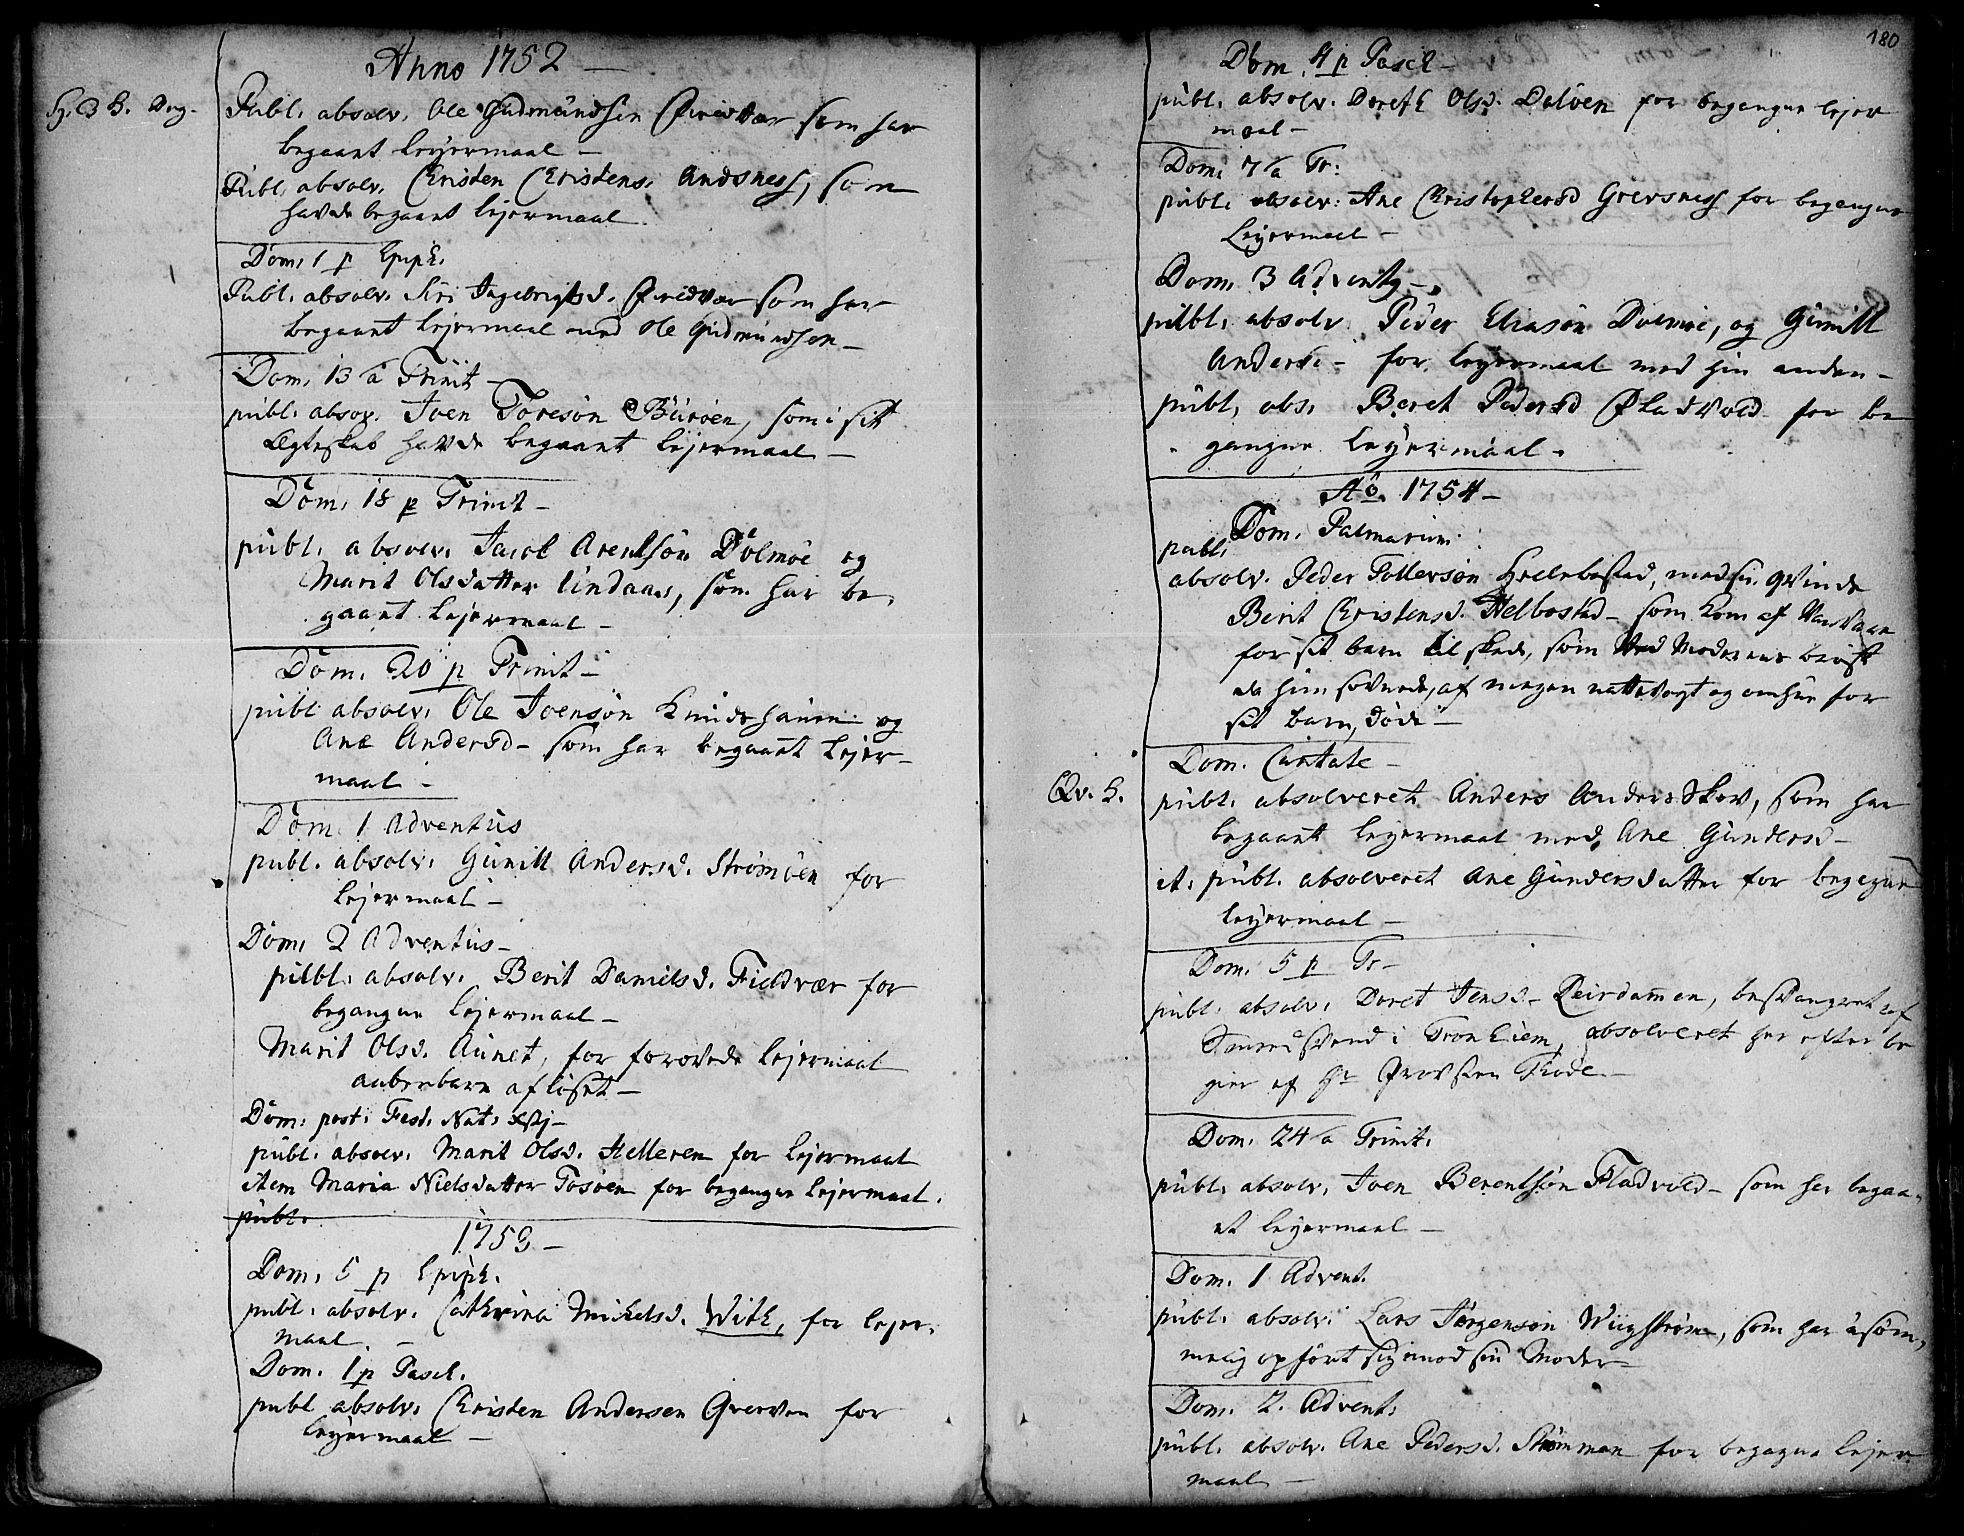 Anno 1752 –
H. 3 K. Dag.
Publ. absolv. Ole Gudmundsen som har
begaaet leyermaal –
Publ. absolv. Christen Christens. Andsness, som
havde begaaet lejermaal
Dom. 1 p Epiph.
Publ. absolv. Siri Ingebrigtsd. som har
begaaet lejermaal med Ole Gudmundsen –
Dom. 13 a Trinit –
publ. absov. Joen Toresøn Burøen, som i sit
Ægteskab havde begaaet lejermaal –
Dom. 18 p Trinit –
publ. absolv. Jacob Arentsøn Dolmøe og
Marit Olsdatter Undaas, som har be-
gaaet lejermaal –
Dom. 20 p Trinit –
publ absolv. Ole Joensøn og
Ane Andersd – som har begaaet lejer-
maal –
Dom. 1 Adventus
publ. absolv. Gunill Andersd. Strømøen for
lejermaal –
Dom. 2 Adventus –
publ. absolv. Berit Danielsd. Fieldvær for
begangne lejermaal –
Marit Olsd. Aunet, for forøvede lejermaal
afløset –
Dom. post. Fest. Nat. Xsti –
publ. absolv. Marit Olsd. Helleren for lejermaal
item Maria Nielsdatter Tosøen for begangne lejermaal.
publ.
1753 –
Dom. 5 p Epiph.
publ. absolv. Cathrina Mickelsd. With, for lejer-
maal –
Dom. 1 p Pasch.
publ absolv. Christen Andersen for
leyermaal –
180
Dom. 4 p Pasch –
publ. absolv. Doreth Olsd. Daløen for begangne lejer
maal –
Dom. 7 a Tr:
publ. absolv. Ane Christophersd Grevsness for begangne
Leyermaal –
Dom. 3 Advents –
publ. absolv. Peder Eliasøn Dolmøe, og Gunill
Andersd – for leyermaal med hin anden –
publ. abs. Beret Pedersd Fladvold for be
gangne leyermaal –
Ao. 1754 –
Dom. Palmarum
publ.
absolv. Peder Tollersøn Helbostad, med sin qvinde
Berit Christensd. Helbostad – som kom af
for sit barn til skade, som ved Moderens
da hun sovnede, af megen nattevagt og omhue for
sit barn, døde –
Dom. Cantate –
Qv. K.
publ. absolveret Anders Anders Skov, som har
begaaet leyermaal med Ane Gundersd –
it. publ. absolveret Ane Gundersdatter for begangne
leyermaal –
Dom. 5 p Tr –
publ. absolv. Doret Jensd – Reirdammen, besvangret af
i Tronhiem, absolveret her efter be
giær af Hr Provsten Thode –
Dom. 24 a Trinit.
publ. absolv. Joen Berentsøn Fladvold – som har begaa-
et leyermaal –
Dom. 1 Advent.
publ. absolv. Lars Jørgensøn Wiigstrøm, som har usøm-
melig opført sig imod sin Moder –
Dom. 2. Advent.
publ. absolv. Ane Pedersd. Strømmen for begangne lejer
maal –